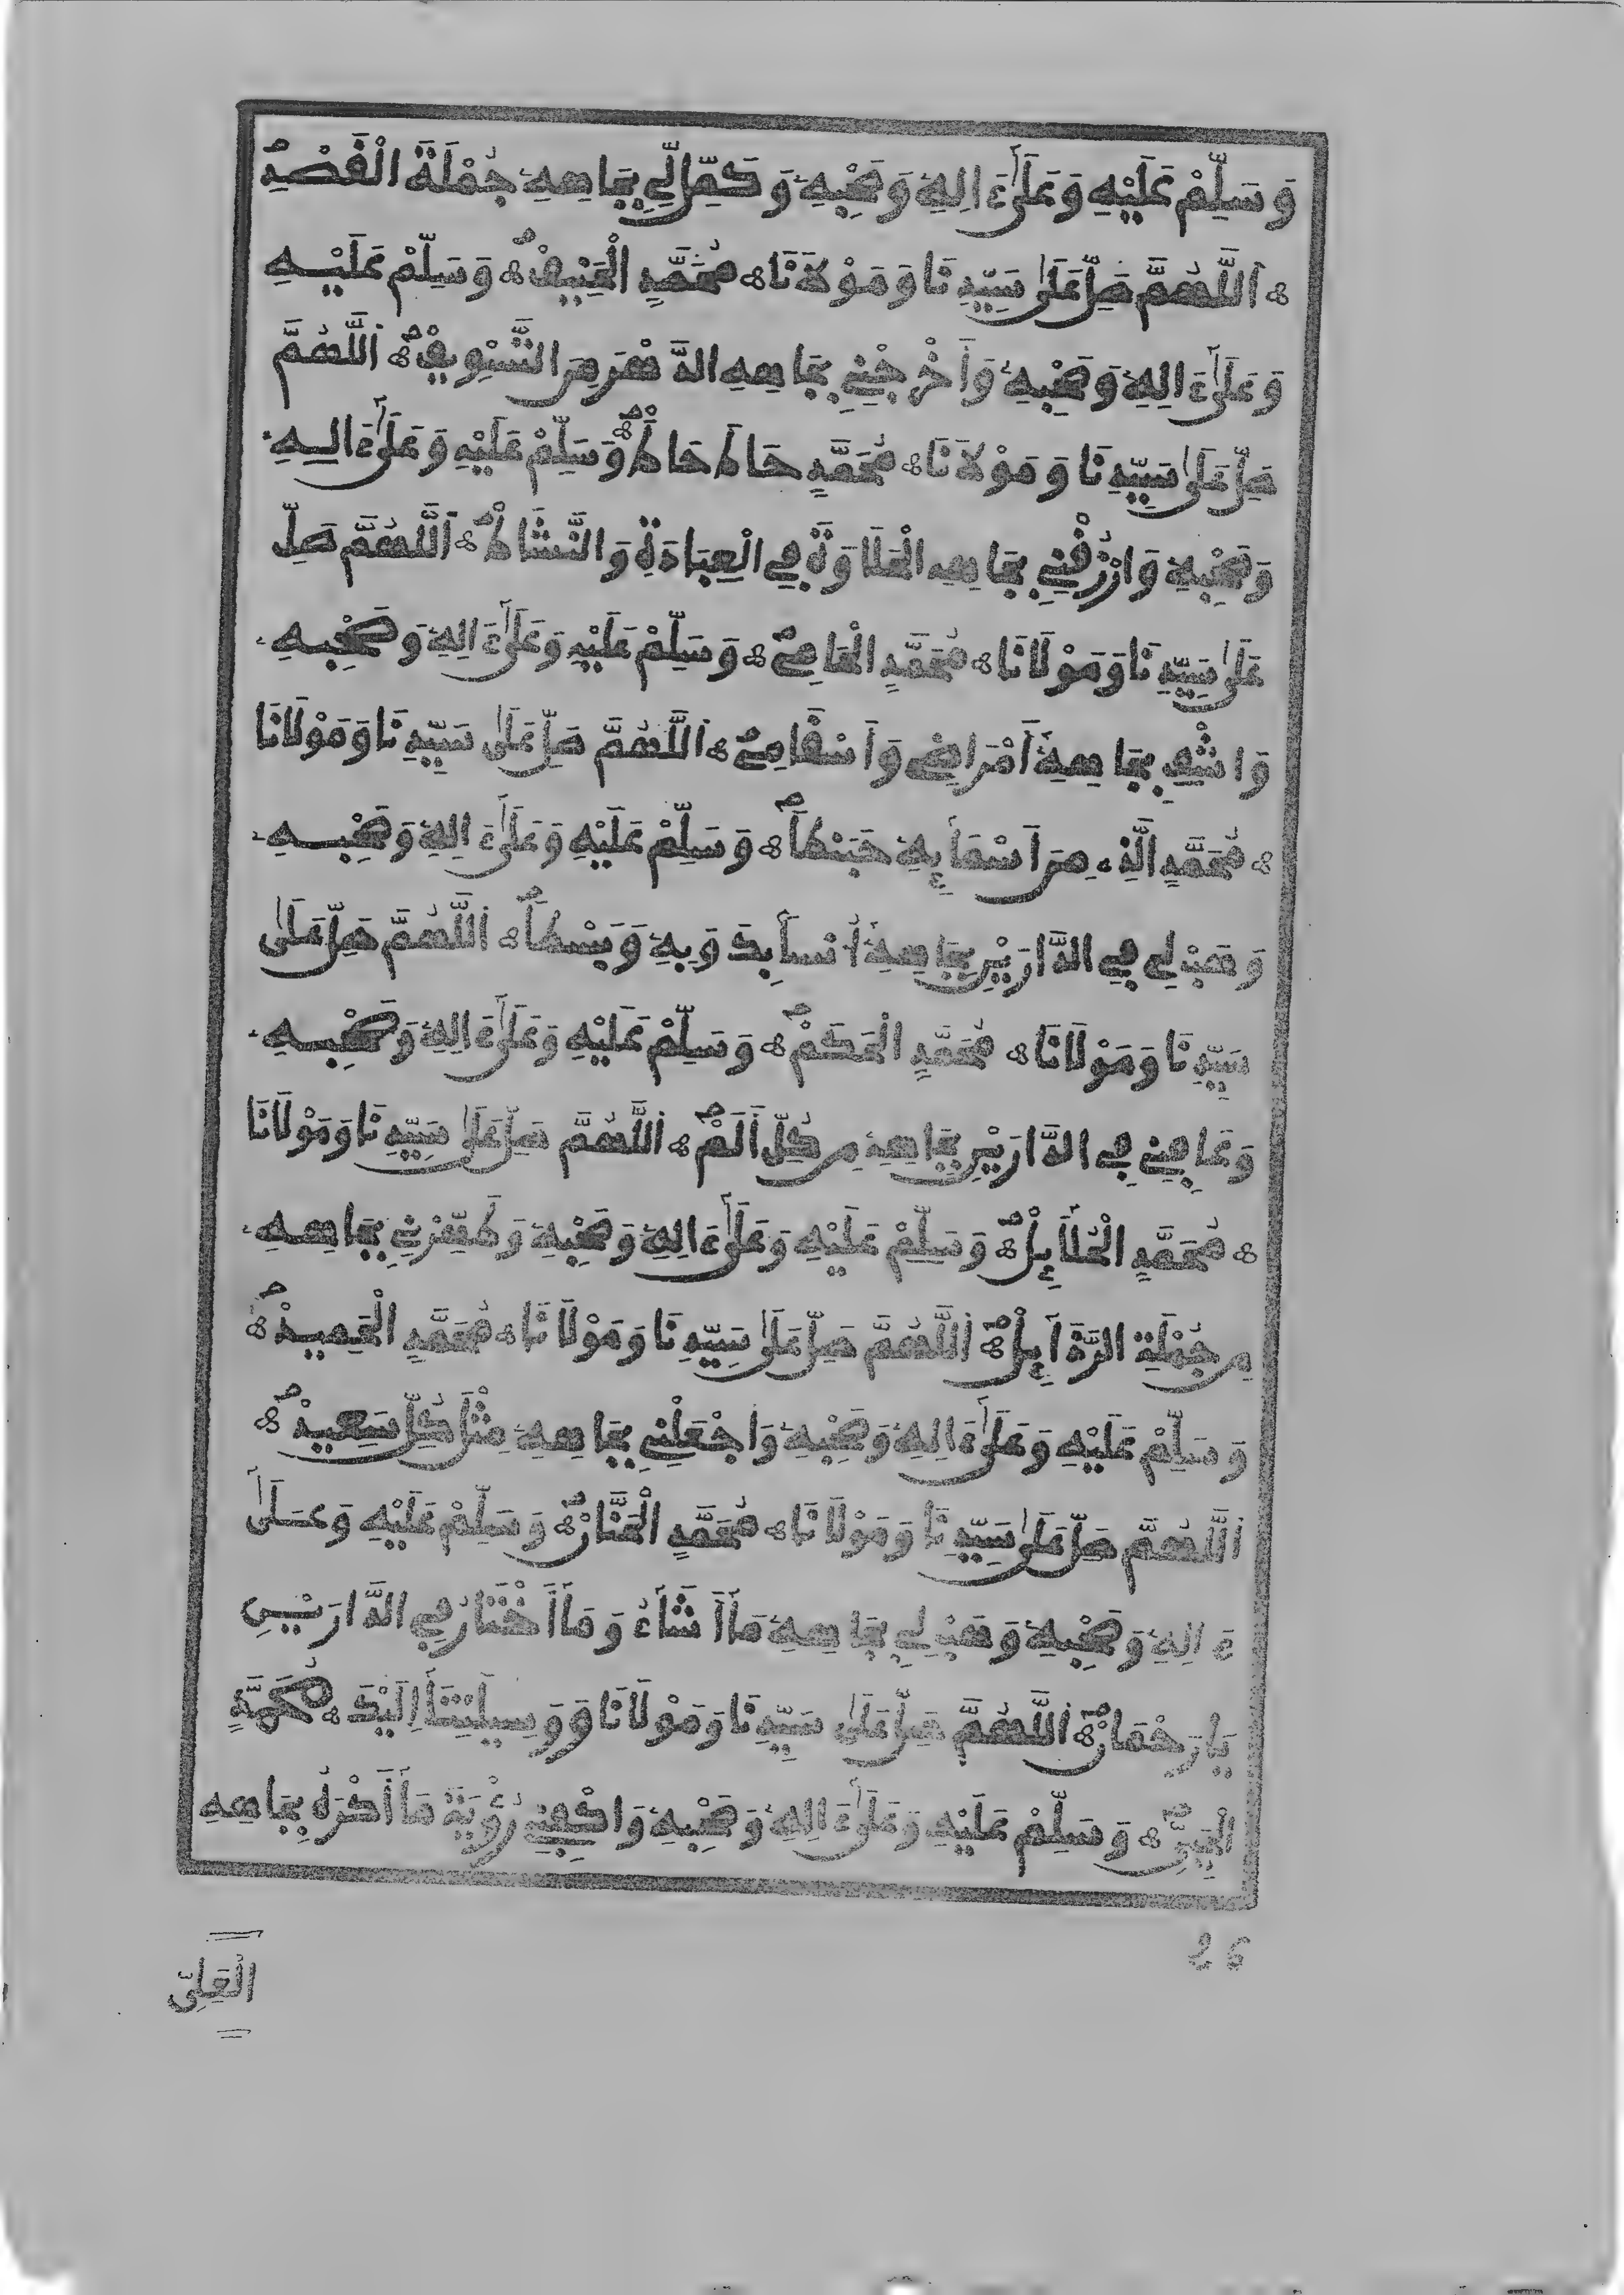 وَسَلِّمْ عَلَيْهِ وَعَلَىٰٓ ءَالِهِ وَصَحْبِهِ وَكَمِّل لِّي بِجَاهِهِ جُمْلَةَ الْقَصْدِ
اَللَّهُمَّ صَلِّ عَلَىٰ سَيِّدِنَا وَمَوْلَانَا مُحَمَّدٍ الْحَنِيفْ وَسَلِّمْ عَلَيْهِ
وَعَلَىٰٓ ءَالِهِ وَصَحْبِهِ وَأَخْرِجْنِي بِجَاهِهِ الدَّهْرَ مِنَ التَّسْوِيفْ اَللَّهُمَّ
صَلِّ عَلَىٰ سَيِّدِنَا وَمَوْلَانَا مُحَمَّدٍ حَاطَ حَاطْ وَسَلِّمْ عَلَيْهِ وَعَلَىٰٓ ءَالِهِ
وَصَحْبِهِ وَارْزُقْنِي بِجَاهِهِ الْحَلَاوَةَ فِي الْعِبَادَةِ وَالنَّشَاطْ اَللَّهُمَّ صَلِّ
عَلَىٰ سَيِّدِنَا وَمَوْلَانَا مُحَمَّدٍ الْحَامِي وَسَلِّمْ عَلَيْهِ وَعَلَىٰٓ ءَالِهِ وَصَحْبِهِ
وَاشْفِ بِجَاهِهِ أَمْرَاضِي وَأَسْقَامِي اَللَّهُمَّ صَلِّ عَلَىٰ سَيِّدِنَا وَمَوْلَانَا
مُحَمَّدٍ الَّذِي مِنَ اَسْمَآئِهِ حَبَنْطَا وَسَلِّمْ عَلَيْهِ وَعَلَىٰٓ ءَالِهِ وَصَحْبِهِ
وَهَبْ لِي فِي الدَّارَيْنِ بِجَاهِهِ أُنْسًا بِكَ وَبِهِ وَبَسْطَا اَللَّهُمَّ صَلِّ عَلَىٰ
سَيِّدِنَا وَمَوْلَانَا مُحَمَّدٍ الْحَكَمْ وَسَلِّمْ عَلَيْهِ وَعَلَىٰٓ ءَالِهِ وَصَحْبِهِ
وَعَافِنِي فِي الدَّارَيْنِ بِجَاهِهِ مِن كُلِّ أَلَمْ اَللَّهُمَّ صَلِّ عَلَىٰ سَيِّدِنَا وَمَوْلَانَا
مُحَمَّدٍ الْحُلَآئِلْ وَسَلِّمْ عَلَيْهِ وَعَلَىٰٓ ءَالِهِ وَصَحْبِهِ وَطَهِّرْنِي بِجَاهِهِ
مِن جُمْلَةِ الرَّذَآئِلْ اَللَّهُمَّ صَلِّ عَلَىٰ سَيِّدِنَا وَمَوْلَانَا مُحَمَّدٍ الْحَمِيدْ
وَسَلِّمْ عَلَيْهِ وَعَلَىٰٓ ءَالِهِ وَصَحْبِهِ وَاجْعَلْنِي بِجَاهِهِ مِثْلَ كُلِّ سَعِيدْ
اَللَّهُمَّ صَلِّ عَلَىٰ سَيِّدِنَا وَمَوْلَانَا مُحَمَّدٍ الْحَنَّانْ وَسَلِّمْ عَلَيْهِ وَعَلَىٰٓ
ءَالِهِ وَصَحْبِهِ وَهَبْ لِي بِجَاهِهِ مَآ أَشَآءُ وَمَآ أَخْتَارُ فِي الدَّارَيْنِ
يَا رَحْمَانْ اَللَّهُمَّ صَلِّ عَلَىٰ سَيِّدِنَا وَمَوْلَانَا وَوَسِيلَتِنَآ إِلَيْكَ مُحَمَّدٍ
الْحَيِيِّ وَسَلِّمْ عَلَيْهِ وَعَلَىٰٓ ءَالِهِ وَصَحْبِهِ وَاكْفِنِي رُؤْيَةَ مَآ أَكْرَهُ بِجَاهِهِ
26
الْعَلِيِّ